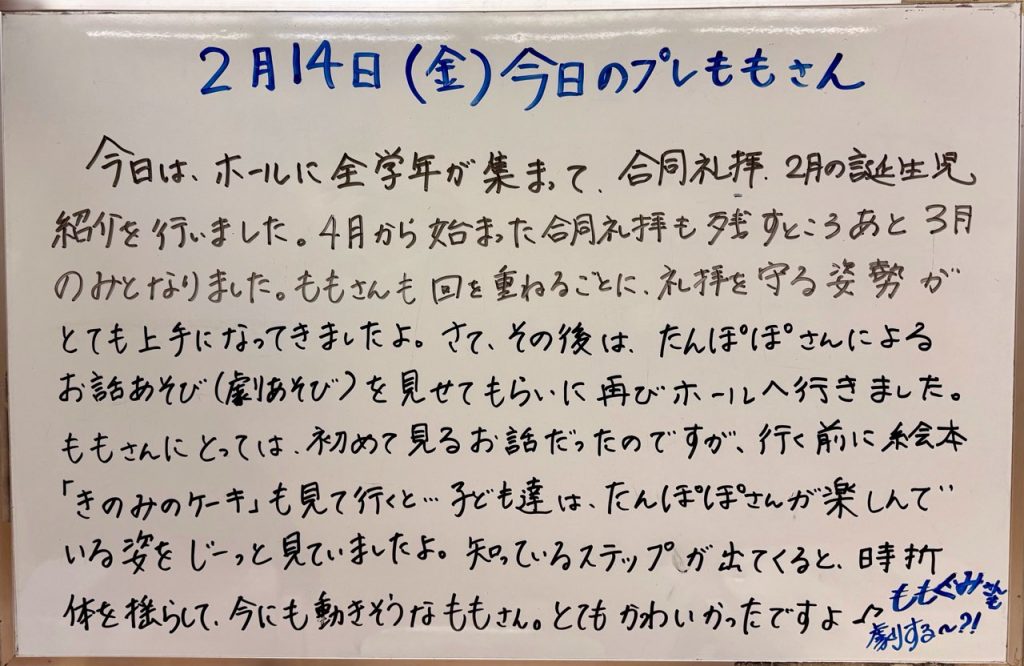 2月14日(金)今日のプレももさん
今日は、ホールに全学年が集まって、合同礼拝、2月の誕生児
紹介を行いました。4月から始まった合同礼拝も残すところあと3月
のみとなりました。ももさんも回を重ねるごとに、礼拝を守る姿勢が
とても上手になってきましたよ。さて、その後は、たんぽぽさんによる
お話あそび(劇あそび)を見せてもらいに再びホールへ行きました。
ももさんにとっては、初めて見るお話だったのですが、行く前に絵本
「きのみのケーキ」も見て行くと…子ども達は、たんぽぽさんが楽しんで
いる姿をじーっと見ていましたよ。知っているステップが出てくると、時折
体を揺らして、今にも動きそうなももさん。とてもかわいかったですよ♪
ももぐみさんも
劇する〜?!